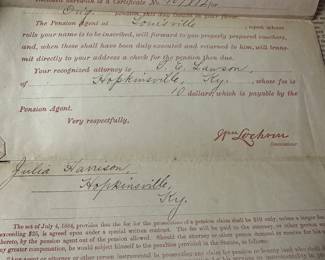 Certificate No.
Orig.
The Pension Agent at Louisville, upon whose
rolls your name is to be inscribed, will forward to you properly prepared vouchers,
and, when these shall have been duly executed and returned to him, will trans-
mit directly to your address a check for the pension then due.
Your recognized attorney is Lawson,
of Hopkinsville, Ky., whose fee is
10 dollars, which is payable by the
Pension Agent.
Very respectfully,
Wm Lochren
Commissioner
Julia Harrison,
Hopkinsville,
Ky.
The act of July 4, 1884, provides that the fee for the prosecution of a pension claim shall be $10 only, unless a larger fee,
exceeding $25, is agreed upon under a special written contract. The fee will be paid to the attorney, or other person
thereto, by the pension agent out of the pension allowed. Should the attorney or other person demand or receive for his
any greater compensation, he would subject himself to the penalties provided in the Statute, as follows: